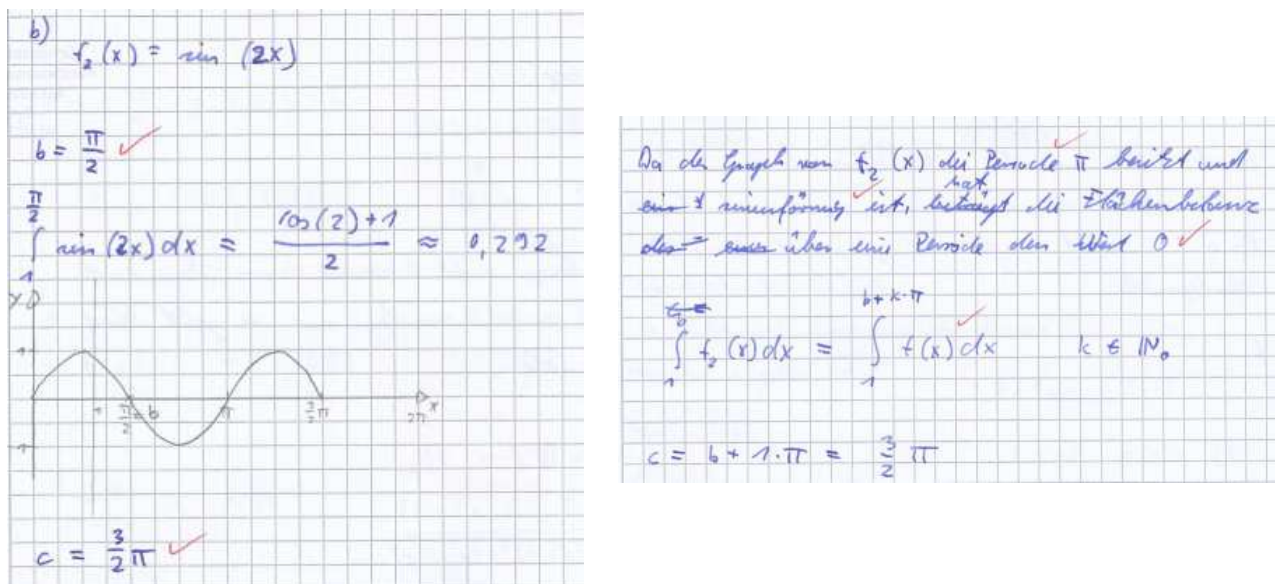 b)
f₂(x) = sin (2x)
b = π/2 ✓
∫₁^(π/2) sin(2x) dx = (cos(2)+1)/2 ≈ 0,292
y
1
1 π/2 = b π 3/2 π 2π x
-1
c = 3/2 π ✓
Da der Graph von f₂(x) die Periode ✓ π besitzt und
sinusförmig ✓ ist, hat die Flächenbilanz
über eine Periode den Wert 0 ✓
∫₁^b f₂(x) dx = ∫₁^(b+k·π) f(x) dx ✓ k ∈ ℕ₀
c = b + 1·π = 3/2 π